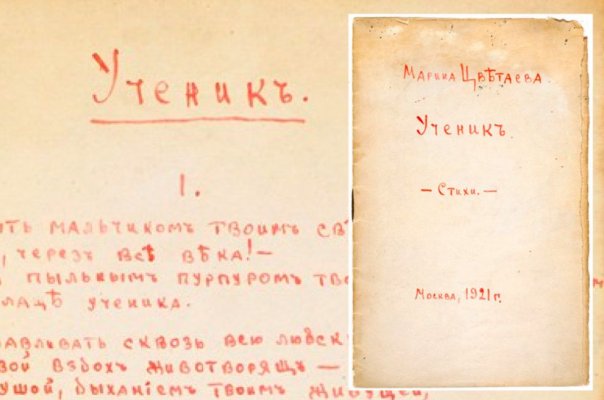 Ученикъ.
1.
ть мальчикомъ твоимъ свѣ
, черезъ всѣ вѣка! —
пыльнымъ пурпуромъ тво
лащѣ ученика.
авливать сквозь всю людск
вой вздохъ животворящъ —
ушой, дыханіемъ твоимъ живущей,
Марина Цвѣтаева.
Ученикъ
— Стихи. —
Москва, 1921 г.